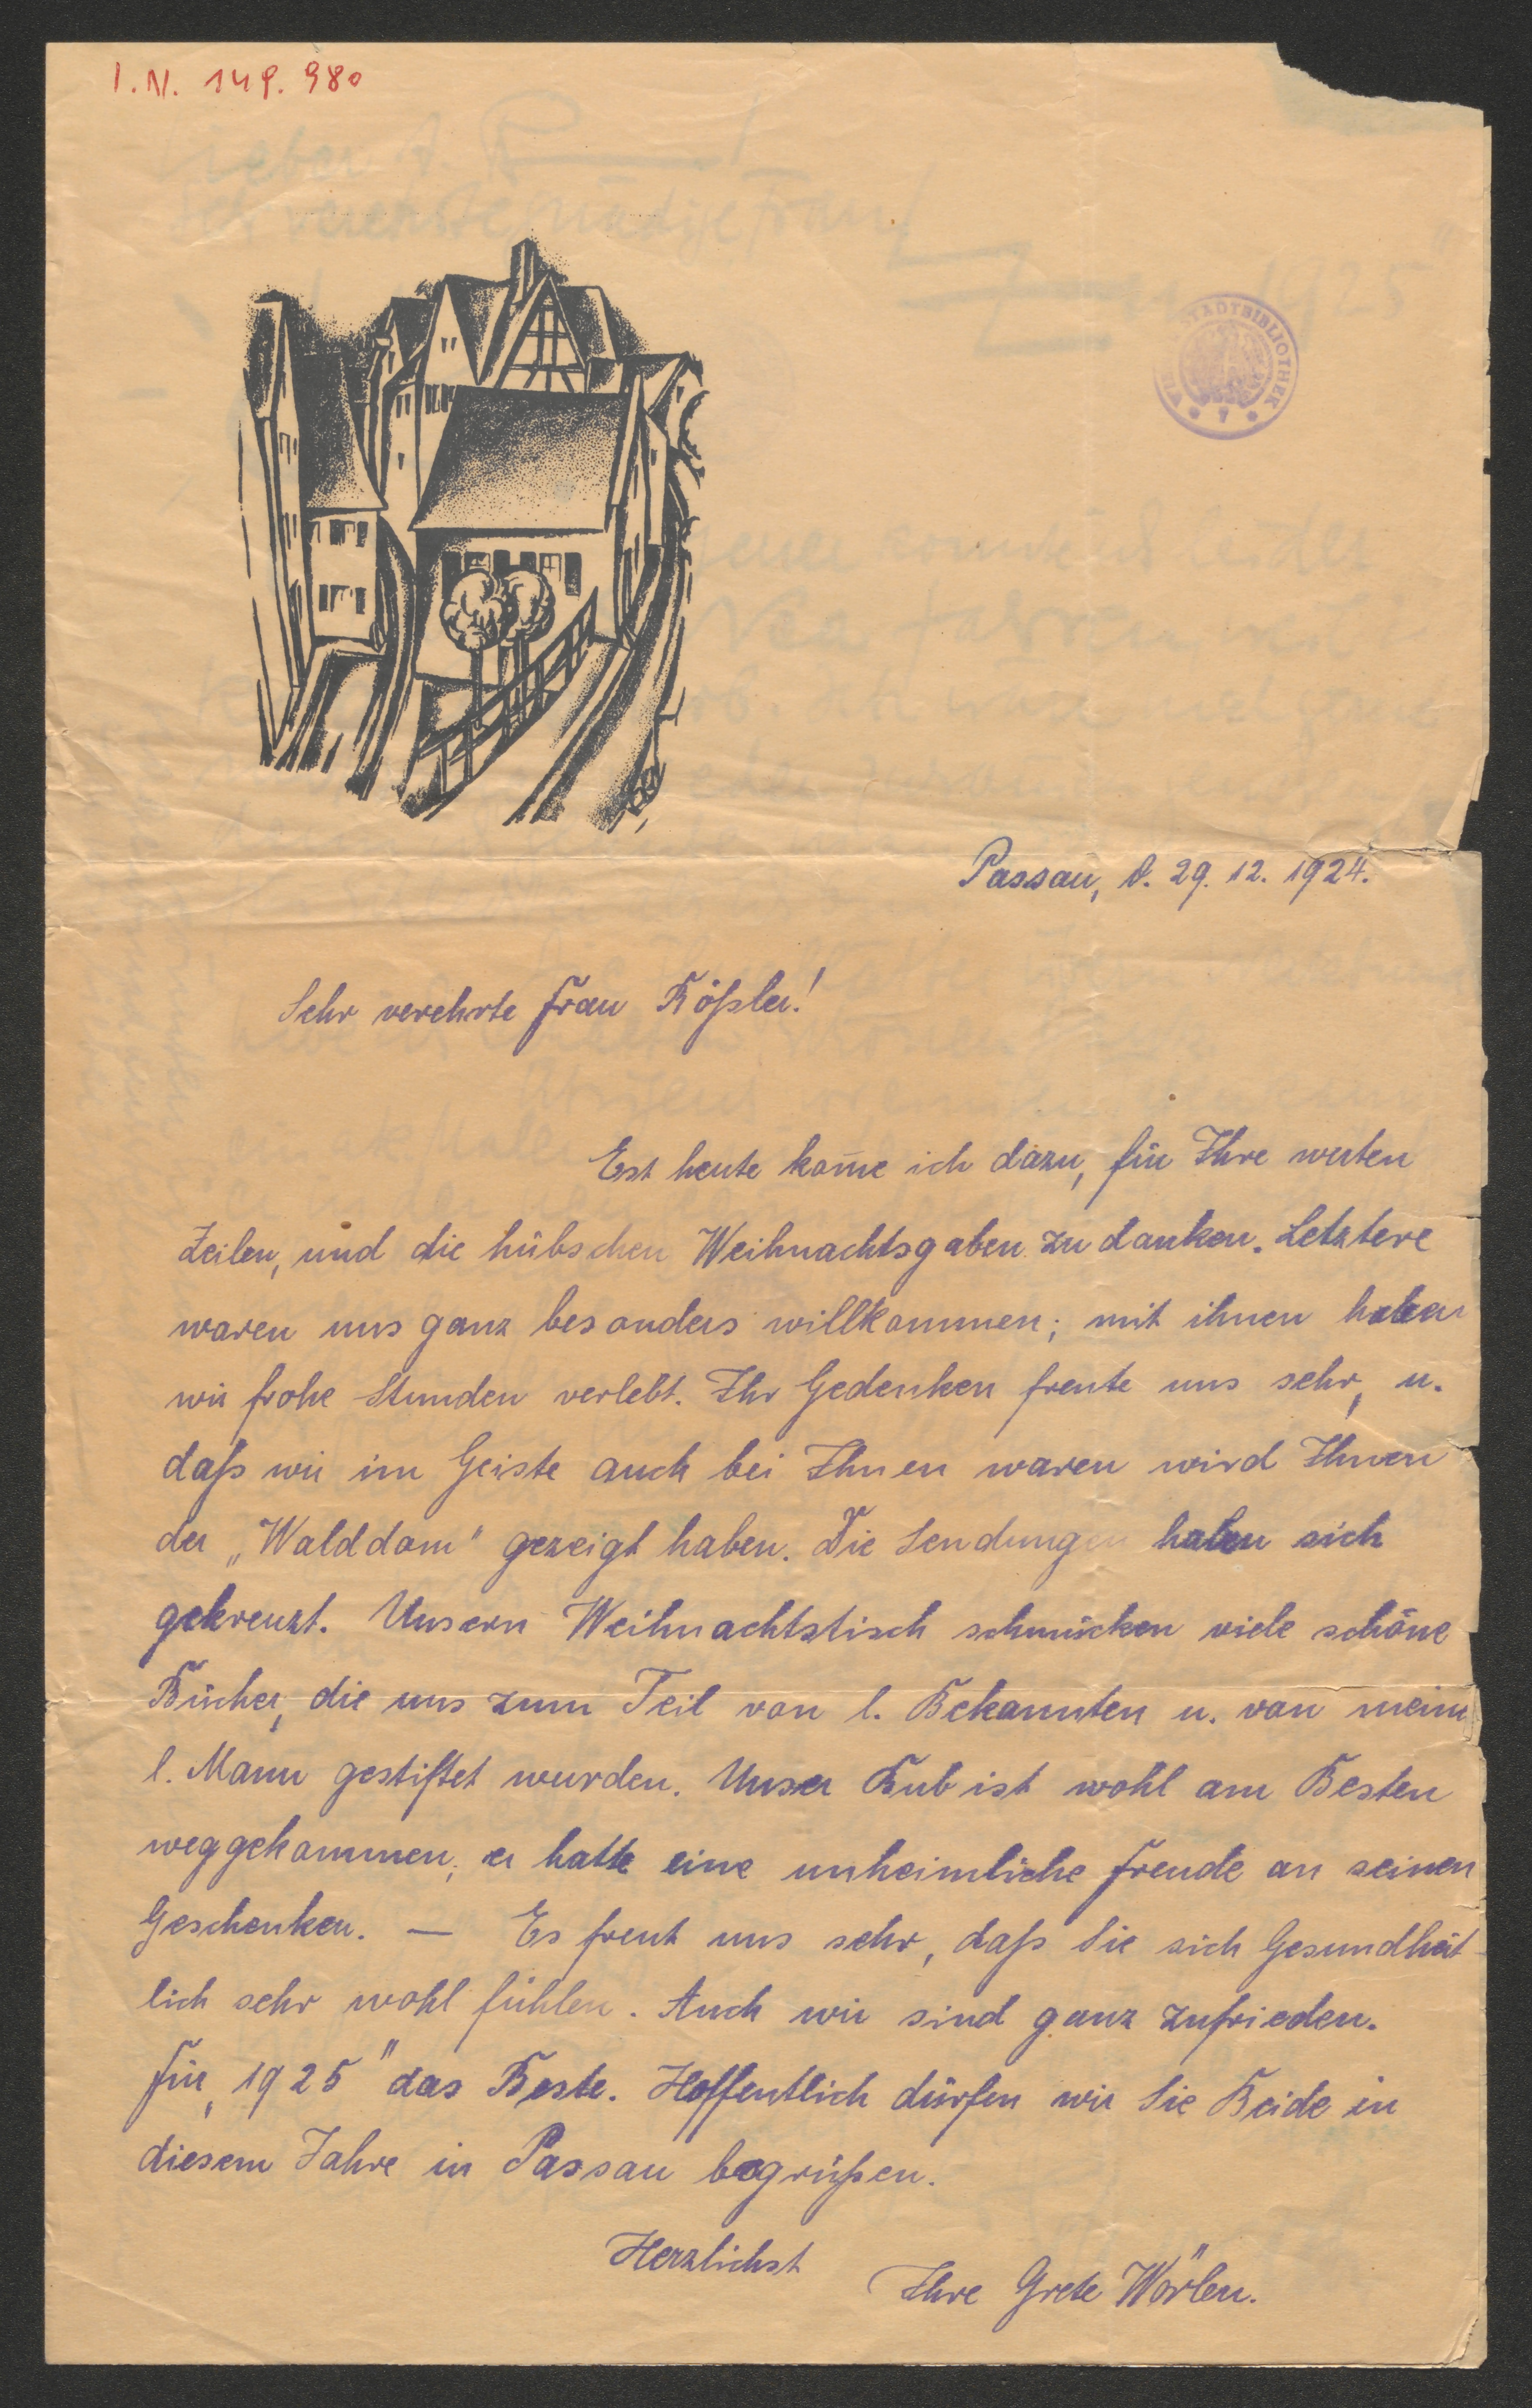 I.N. 149.980
STADTBIBLIOTHEK
WIEN
Passau, d. 29. 12. 1924.
Sehr verehrte Frau Rößler!
Est heute kom̄e ich dazu, für Ihre werten
Zeilen, und die hübschen Weihnachtsgaben zu danken. Letztere
waren uns ganz besonders willkommen; mit ihnen haben
wir frohe Stunden verlebt. Ihr Gedenken freute uns sehr, u.
daß wir im Geiste auch bei Ihnen waren wird Ihnen
der „Walddom" gezeigt haben. Die Sendungen haben sich
gekreuzt. Unsern Weihnachtstisch schmücken viele schöne
Bücher, die uns zum Teil von l. Bekannten u. von meim
l. Mann gestiftet wurden. Unser Bub ist wohl am Besten
weggekommen, er hatte eine unheimliche Freude an seinen
Geschenken. — Es freut uns sehr, daß Sie sich Gesundheit-
lich sehr wohl fühlen. Auch wir sind ganz zufrieden.
Für „1925" das Beste. Hoffentlich dürfen wir Sie Beide in
diesem Jahre in Passau begrüßen.
Herzlichst
Ihre Grete Wörlen.